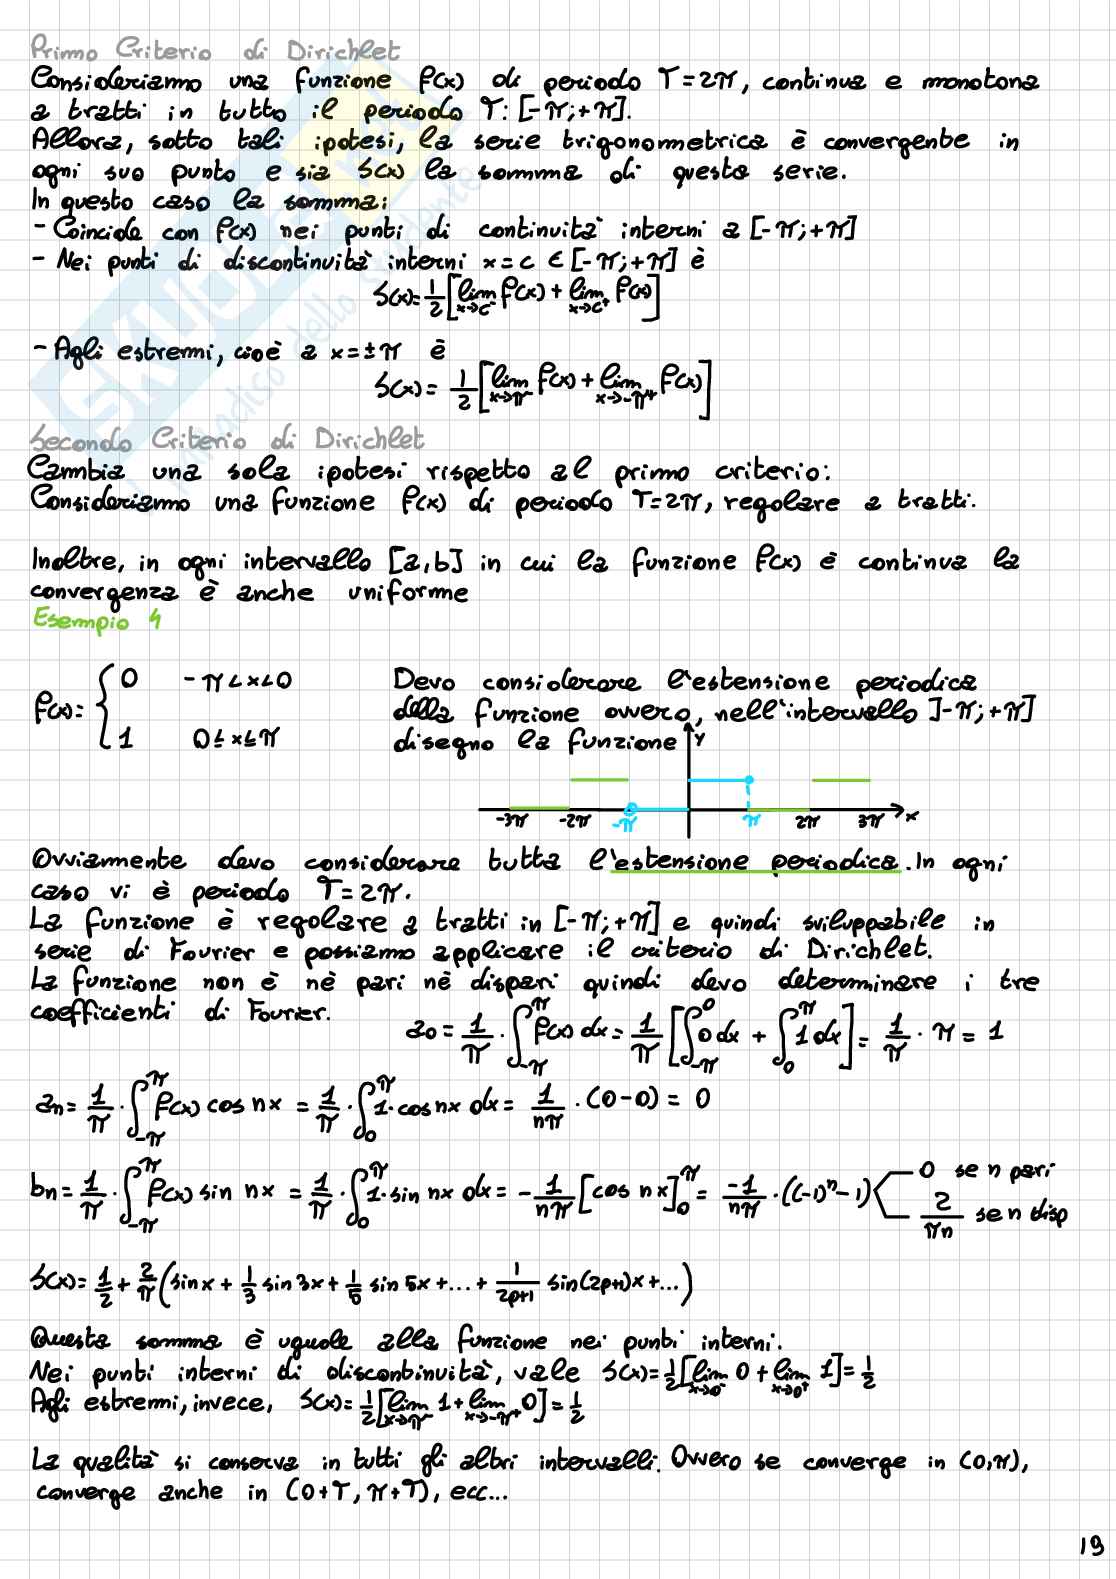 Primo Criterio di Dirichlet
Consideriamo una funzione f(x) di periodo T=2π, continua e monotona
a tratti in tutto il periodo T: [-π;+π].
Allora, sotto tali ipotesi, la serie trigonometrica è convergente in
ogni suo punto e sia S(x) la somma di questa serie.
In questo caso la somma:
- Coincide con f(x) nei punti di continuità interni a [-π;+π]
- Nei punti di discontinuità interni x=c ∈ [-π;+π] è
S(x)=1/2[lim x→c⁻ f(x) + lim x→c⁺ f(x)]
- Agli estremi, cioè a x=±π è
S(x)= 1/2[lim x→π⁻ f(x) + lim x→-π⁺ f(x)]
Secondo Criterio di Dirichlet
Cambia una sola ipotesi rispetto al primo criterio:
Consideriamo una funzione f(x) di periodo T=2π, regolare a tratti.
Inoltre, in ogni intervallo [a,b] in cui la funzione f(x) è continua la
convergenza è anche uniforme
Esempio 4
f(x)= { 0 -π<x<0
1 0≤x≤π
Devo considerare l'estensione periodica
della funzione ovvero, nell'intervallo ]-π;+π]
disegno la funzione
y
-3π -2π -π π 2π 3π x
Ovviamente devo considerare tutta l'estensione periodica. In ogni
caso vi è periodo T=2π.
La funzione è regolare a tratti in [-π;+π] e quindi sviluppabile in
serie di Fourier e possiamo applicare il criterio di Dirichlet.
La funzione non è nè pari nè dispari quindi devo determinare i tre
coefficienti di Fourier.
a₀ = 1/π · ∫_{-π}^{π} f(x) dx = 1/π [∫_{-π}^{0} 0 dx + ∫_{0}^{π} 1 dx] = 1/π · π = 1
aₙ = 1/π · ∫_{-π}^{π} f(x) cos nx = 1/π · ∫_{0}^{π} 1· cos nx dx = 1/nπ · (0-0) = 0
bₙ = 1/π · ∫_{-π}^{π} f(x) sin nx = 1/π · ∫_{0}^{π} 1· sin nx dx = - 1/nπ [cos nx]_{0}^{π} = -1/nπ · ((-1)ⁿ-1) 0 se n pari
2/πn se n disp
S(x)= 1/2 + 2/π (sin x + 1/3 sin 3x + 1/5 sin 5x +... + 1/2p+1 sin(2p+1)x +...)
Questa somma è uguale alla funzione nei punti interni.
Nei punti interni di discontinuità, vale S(x)=1/2[lim x→0⁻ 0 + lim x→0⁺ 1]=1/2
Agli estremi, invece, S(x)=1/2[lim x→π⁻ 1 + lim x→-π⁺ 0]=1/2
La qualità si conserva in tutti gli altri intervalli. Ovvero se converge in (0,π),
converge anche in (0+T, π+T), ecc...
19